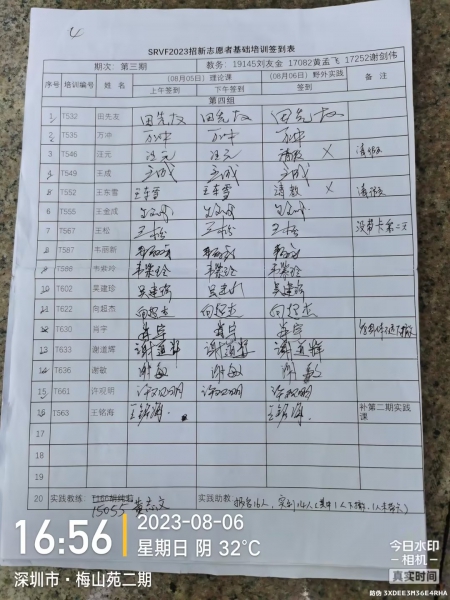 4
SRVF2023招新志愿者基础培训签到表
期次：第三期 教务：19145刘友金 17082黄孟飞 17252谢剑伟
序号 培训编号 姓名 (08月05日) 理论课 (08月06日) 野外实践 备注
上午签到 下午签到 签到
第四组
1 T532 田先友 田先友 田先友 田先友
2 T535 万冲 万冲 万冲 万冲
3 T546 汪元 汪元 汪元 请假 X 请假
4 T549 王成 王成 王成 王成
5 T552 王东雪 王东雪 王东雪 请假 X 请假
6 T555 王金成
7 T567 王松 王松 王松 王松 没带卡
8 T587 韦丽新
9 T588 韦紫玲
10 T602 吴建珍 吴建珍
11 T622 向超杰 向超杰 向超杰 向超杰
12 T630 肖宇 肖宇 肖宇 肖宇
13 T633 谢道辉 谢道辉 谢道辉 谢道辉
14 T636 谢敏 谢敏 谢敏 谢敏
15 T661 许观明 许观明 许观明 许观明
16 T563 王铭海 王铭海 王铭海 补第二期实践课
17
18
19
20 实践教练： 15055 黄志文 实践助教：
16:56 2023-08-06
星期日 阴 32℃
深圳市·梅山苑二期
今日水印
相机
真实时间
防伪 3XDEE3M36E4RHA